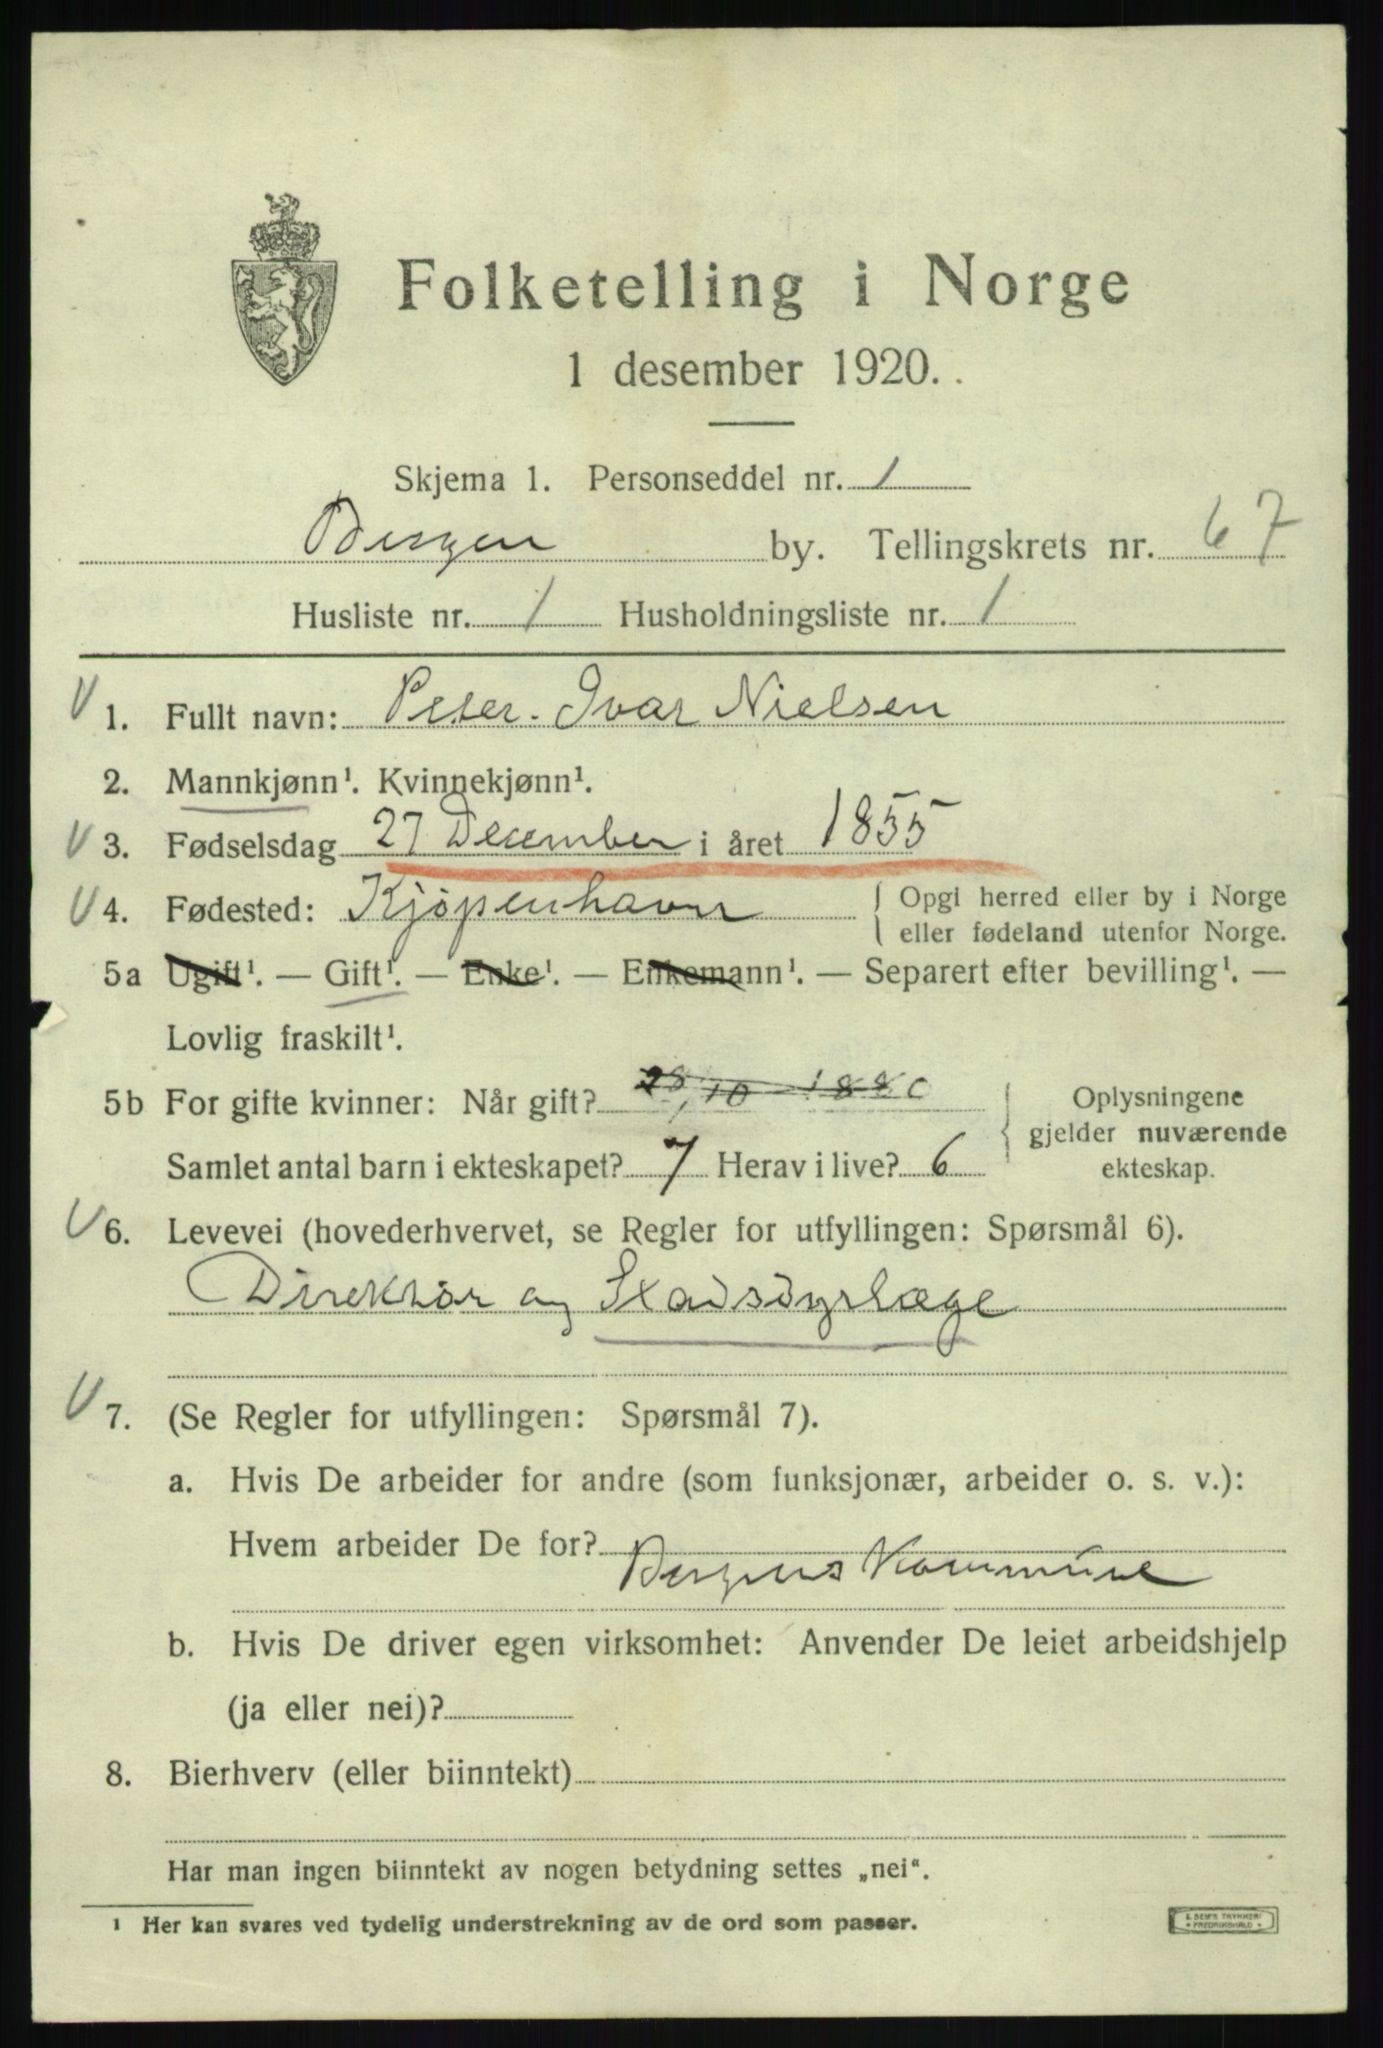 Folketelling i Norge
1 desember 1920.
Skjema 1. Personseddel nr. 1
Bergen by. Tellingskrets nr. 67
Husliste nr. 1 Husholdningsliste nr. 1
1. Fullt navn: Peter Ivar Nielsen
2. Mannkjønn¹. Kvinnekjønn¹.
3. Fødselsdag 27 December i året 1855
4. Fødested: Kjøpenhavn { Opgi herred eller by i Norge
eller fødeland utenfor Norge.
5a Ugift¹. — Gift¹. — Enke¹. — Enkemann¹. — Separert efter bevilling¹. —
Lovlig fraskilt¹.
5b For gifte kvinner: Når gift? 28/10 1880 { Oplysningene
gjelder nuværende
ekteskap.
Samlet antal barn i ekteskapet? 7 Herav i live? 6
6. Levevei (hovederhvervet, se Regler for utfyllingen: Spørsmål 6).
Direktør og Stadsdyrlæge
7. (Se Regler for utfyllingen: Spørsmål 7).
a. Hvis De arbeider for andre (som funksjonær, arbeider o. s. v.):
Hvem arbeider De for?
Bergens Kommune
b. Hvis De driver egen virksomhet: Anvender De leiet arbeidshjelp
(ja eller nei)?
8. Bierhverv (eller biinntekt)
Har man ingen biinntekt av nogen betydning settes „nei“.
¹ Her kan svares ved tydelig understrekning av de ord som passer.